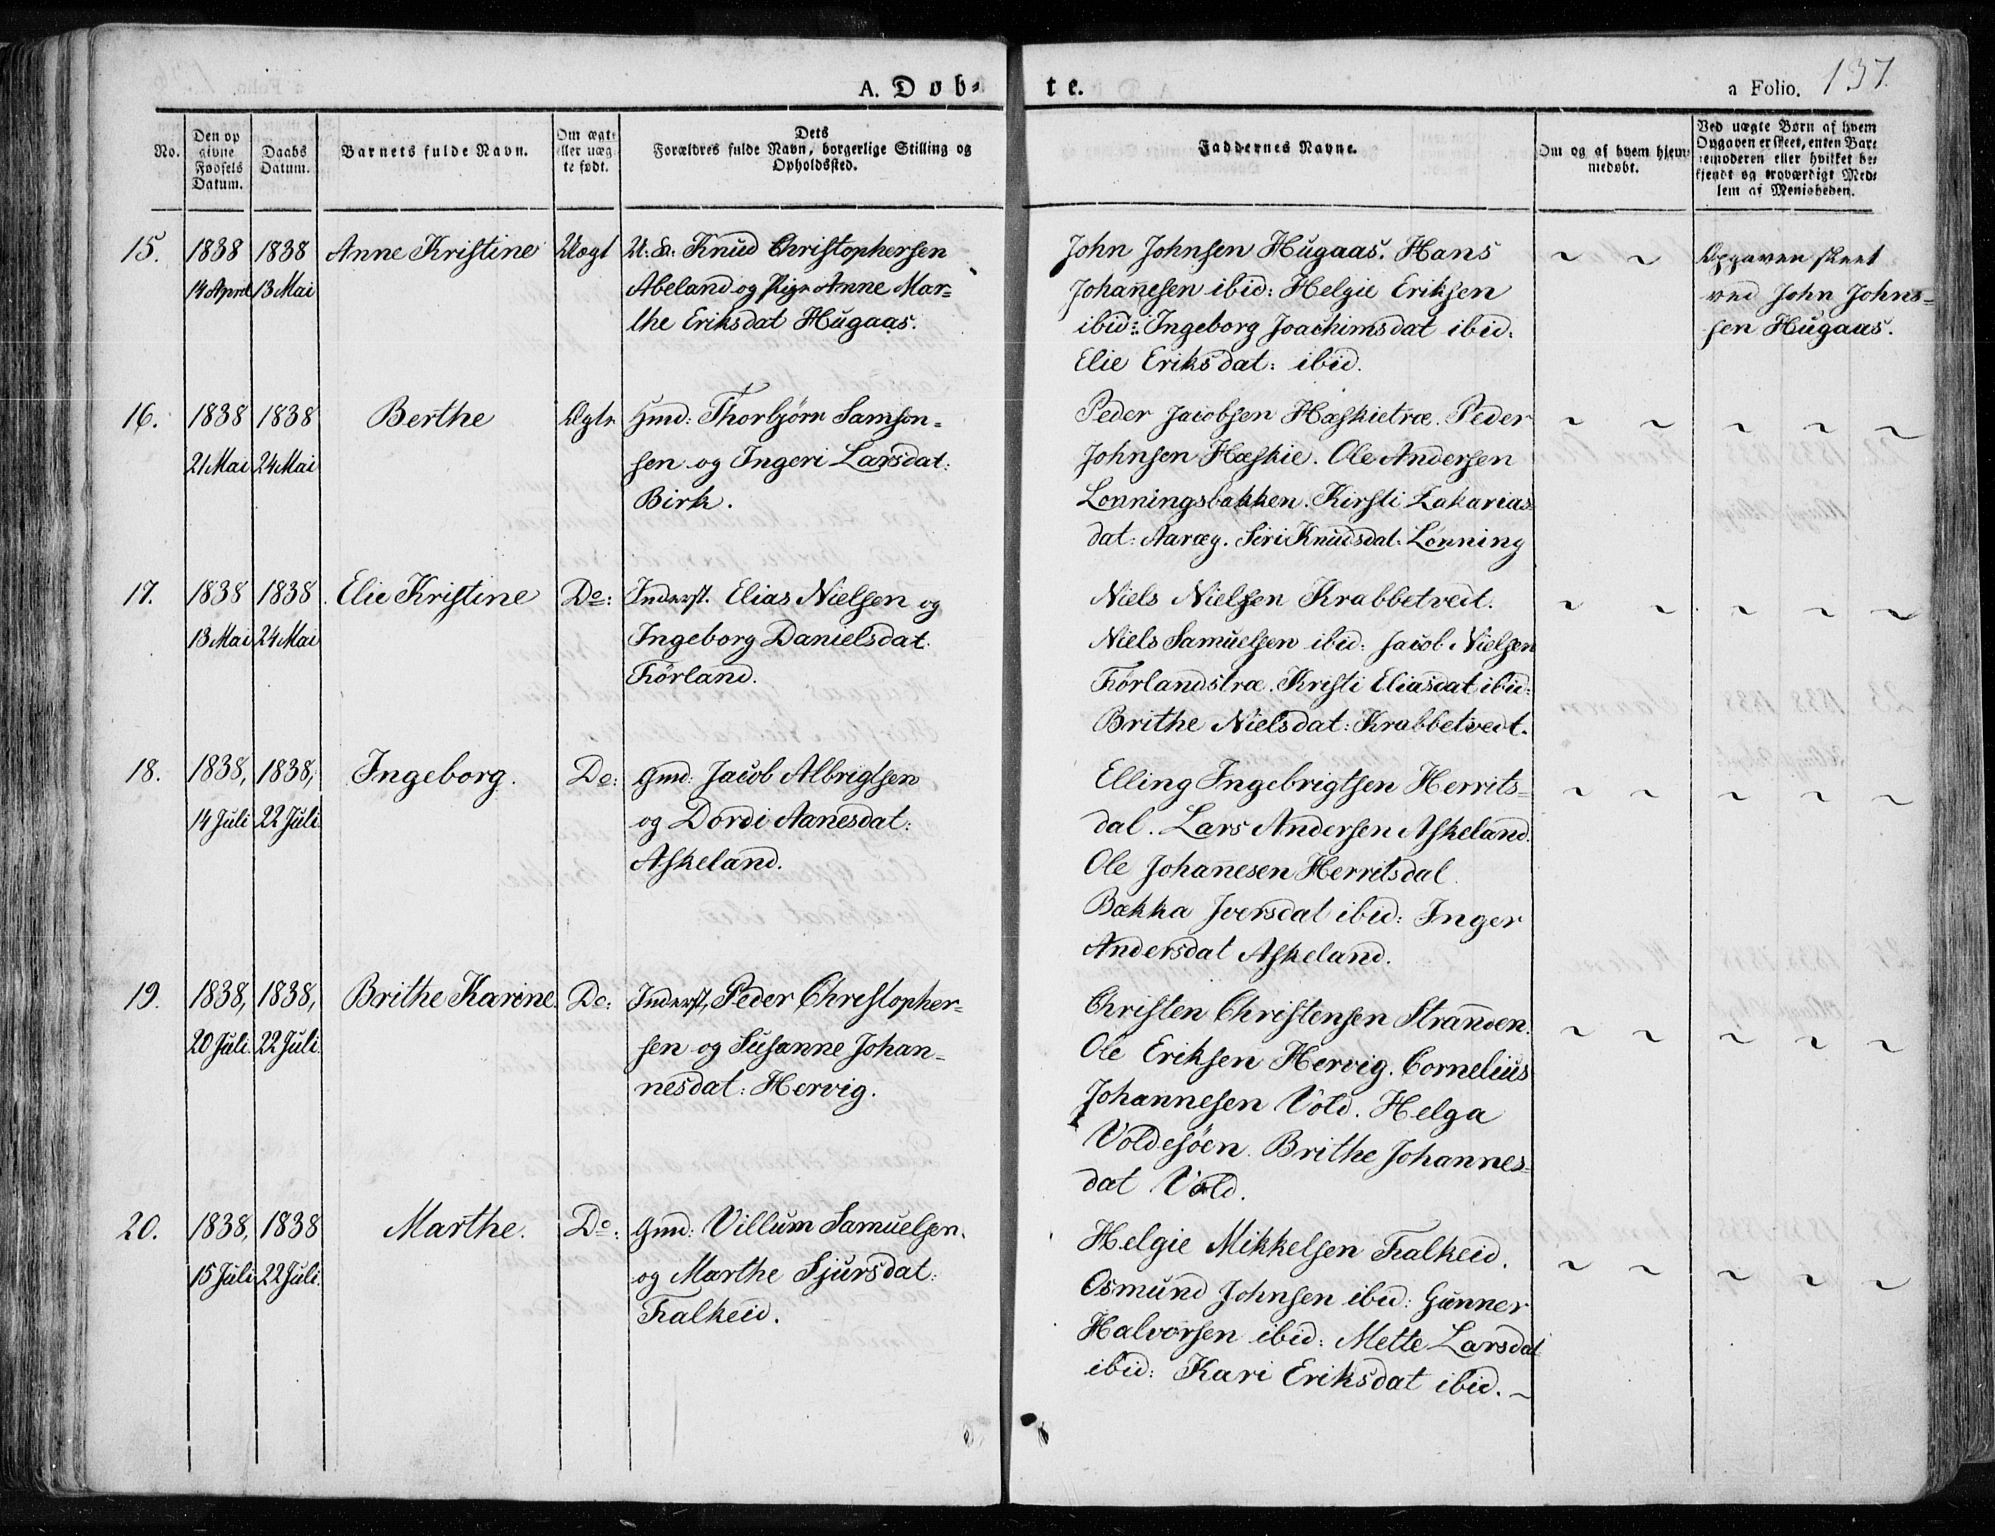 A. Døb-
te.
a Folio. 137.
No.
Den op
givne
Fødsels
Datum.
Daabs
Datum.
Barnets fulde Navn.
Om ægte
eller uæg-
te født.
Dets
Forældres fulde Navn, borgerlige Stilling og
Opholdssted.
Faddernes Navne.
Om og af hvem hjem-
medøbt.
Ved uægte Børn af hvem
Opgaven er skeet, enten Bar-
nemoderen eller hvilket be-
kjendt og troværdigt Med-
lem af Menigheden.
15.
1838
14 April
1838
13 Mai
Anne Kristine
Uægt
U: K: Knud Christophersen
Abeland og Pige Anne Mar-
the Eriksdat Hugaas.
John Johnsen Hugaas. Hans
Johanesen ibid: Helgie Eriksen
ibid: Ingeborg Joachimsdat ibid:
Elie Eriksdat: ibid.
~ ~
Opgaven skeet
ved John Johns-
sen Hugaas.
16.
1838
21 Mai
1838
24 Mai
Berthe
Ægte
Gmd: Thorbjørn Samson-
sen og Ingeri Larsdat:
Birk.
Peder Jacobsen Hæskietræ. Peder
Johnsen Hæskie. Ole Andersen
Lonningsbakken. Kirsti Zakarias-
dat: Aaræg. Siri Knudsdat. Lonning
~ ~ ~ ~ ~
17.
1838
13 Mai
1838
24 Mai
Elie Kristine
Do:
Inderst. Elias Nielsen og
Ingeborg Danielsdat.
Førland.
Niels Nielsen Krabbetvedt.
Niels Samuelsen ibid: Jacob Nielsen
Førlandstræ. Kristi Eliasdat ibid:
Brithe Nielsdat: Krabbetvedt.
~ ~ ~ ~ ~
18.
1838,
14 Juli
1838,
22 Juli.
Ingeborg.
Do:
Gmd: Jacob Albrigtsen
og Dordi Aanesdat:
Askeland.
Elling Ingebrigtsen Herrits-
dal. Lars Andersen Askeland.
Ole Johannesen Herritsdal
Bækka Iversdat ibid: Inger
Andersdat Askeland.
~ ~ ~ ~ ~
19.
1838,
20 Juli.
1838,
22 Juli.
Brithe Karine.
Do:
Inderst, Peder Christopher-
sen og Susanne Johan-
nesdat: Hervig.
Christen Christensen Stranden.
Ole Eriksen Hervig. Cornelius
Johannesen Vold. Helga
Voldesøen. Brithe Johannes-
dat Vold.
~ ~ ~ ~ ~
20.
1838,
15 Juli
1838
22 Juli.
Marthe.
Do:
Gmd: Villum Samuelsen.
og Marthe Sjursdat:
Falkeid.
Helgie Mikkelsen Falkeid.
Osmund Johnsen ibid: Gunner
Halvorsen ibid: Mette Larsdat
ibid: Kari Eriksdat ibid. ~
~ ~ ~ ~ ~